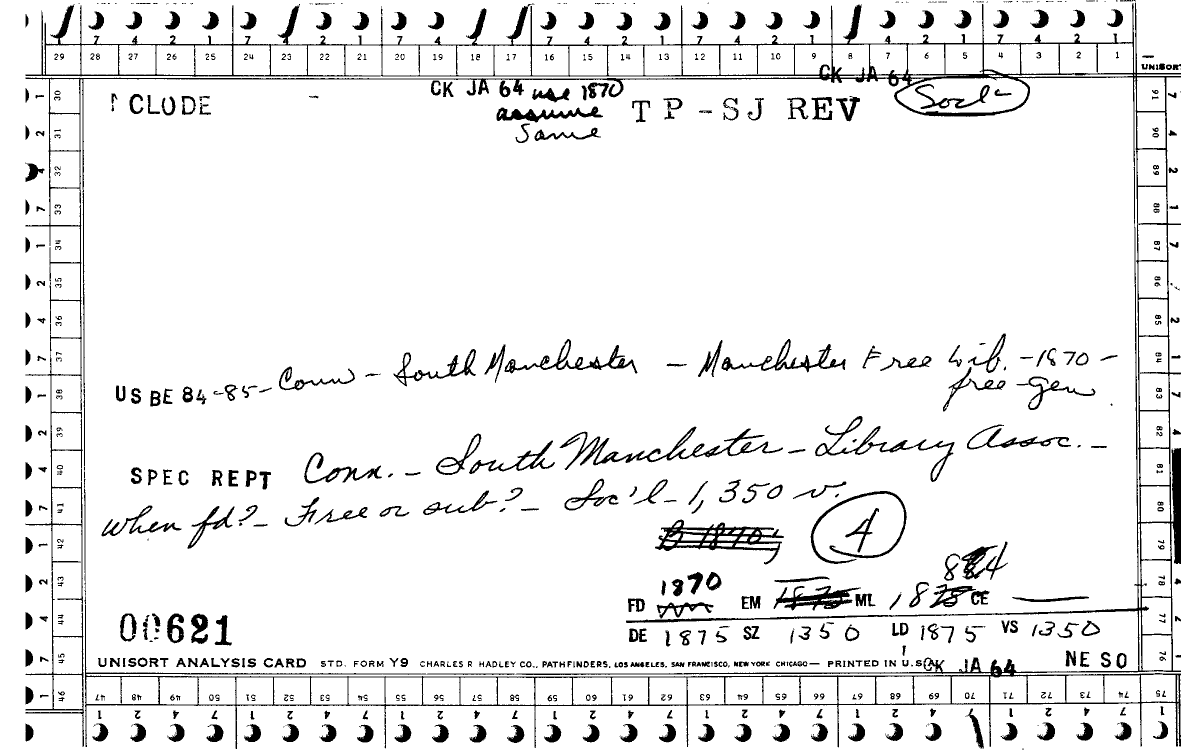 7 4 2 1 7 4 2 1 7 4 2 1 7 4 2 1 7 4 2 1 7 4 2 1 7 4 2 1
29 28 27 26 25 24 23 22 21 20 19 18 17 16 15 14 13 12 11 10 9 8 7 6 5 4 3 2 1
UNISORT
CK JA 64
CK JA 64 use 1870
CLODE
assume
TP-SJ REV
Soc'l
Same
US BE 84-85 - Conn - South Manchester - Manchester Free Lib. - 1870 -
free - Gen
SPEC REPT Conn. - South Manchester - Library Assoc. -
When fd? - Free or sub? - Soc'l - 1,350 v.
B 1870,
4
1870
FD EM ML CE
00621
DE 1875 SZ 1350 LD 1875 VS 1350
UNISORT ANALYSIS CARD STD. FORM Y9 CHARLES R HADLEY CO., PATHFINDERS, LOS ANGELES, SAN FRANCISCO, NEW YORK CHICAGO — PRINTED IN U.S.
CK JA 64
NE SO
30 31 32 33 34 35 36 37 38 39 40 41 42 43 44 45 46
91 90 89 88 87 86 85 84 83 82 81 80 79 78 77 76 75
47 48 49 50 51 52 53 54 55 56 57 58 59 60 61 62 63 64 65 66 67 68 69 70 71 72 73 74